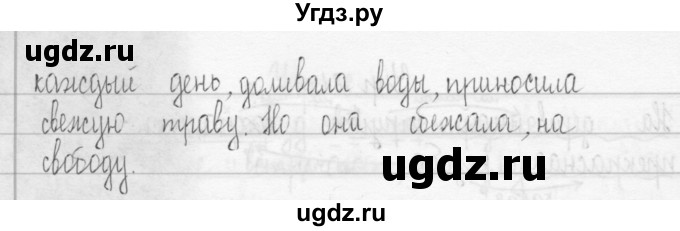 Угдз.ру
ugdz.ru
каждый день, доливала воды, приносила
свежую траву. Но она сбежала, на
свободу.
ugdz.ru
ugdz.ru
ugdz.ru